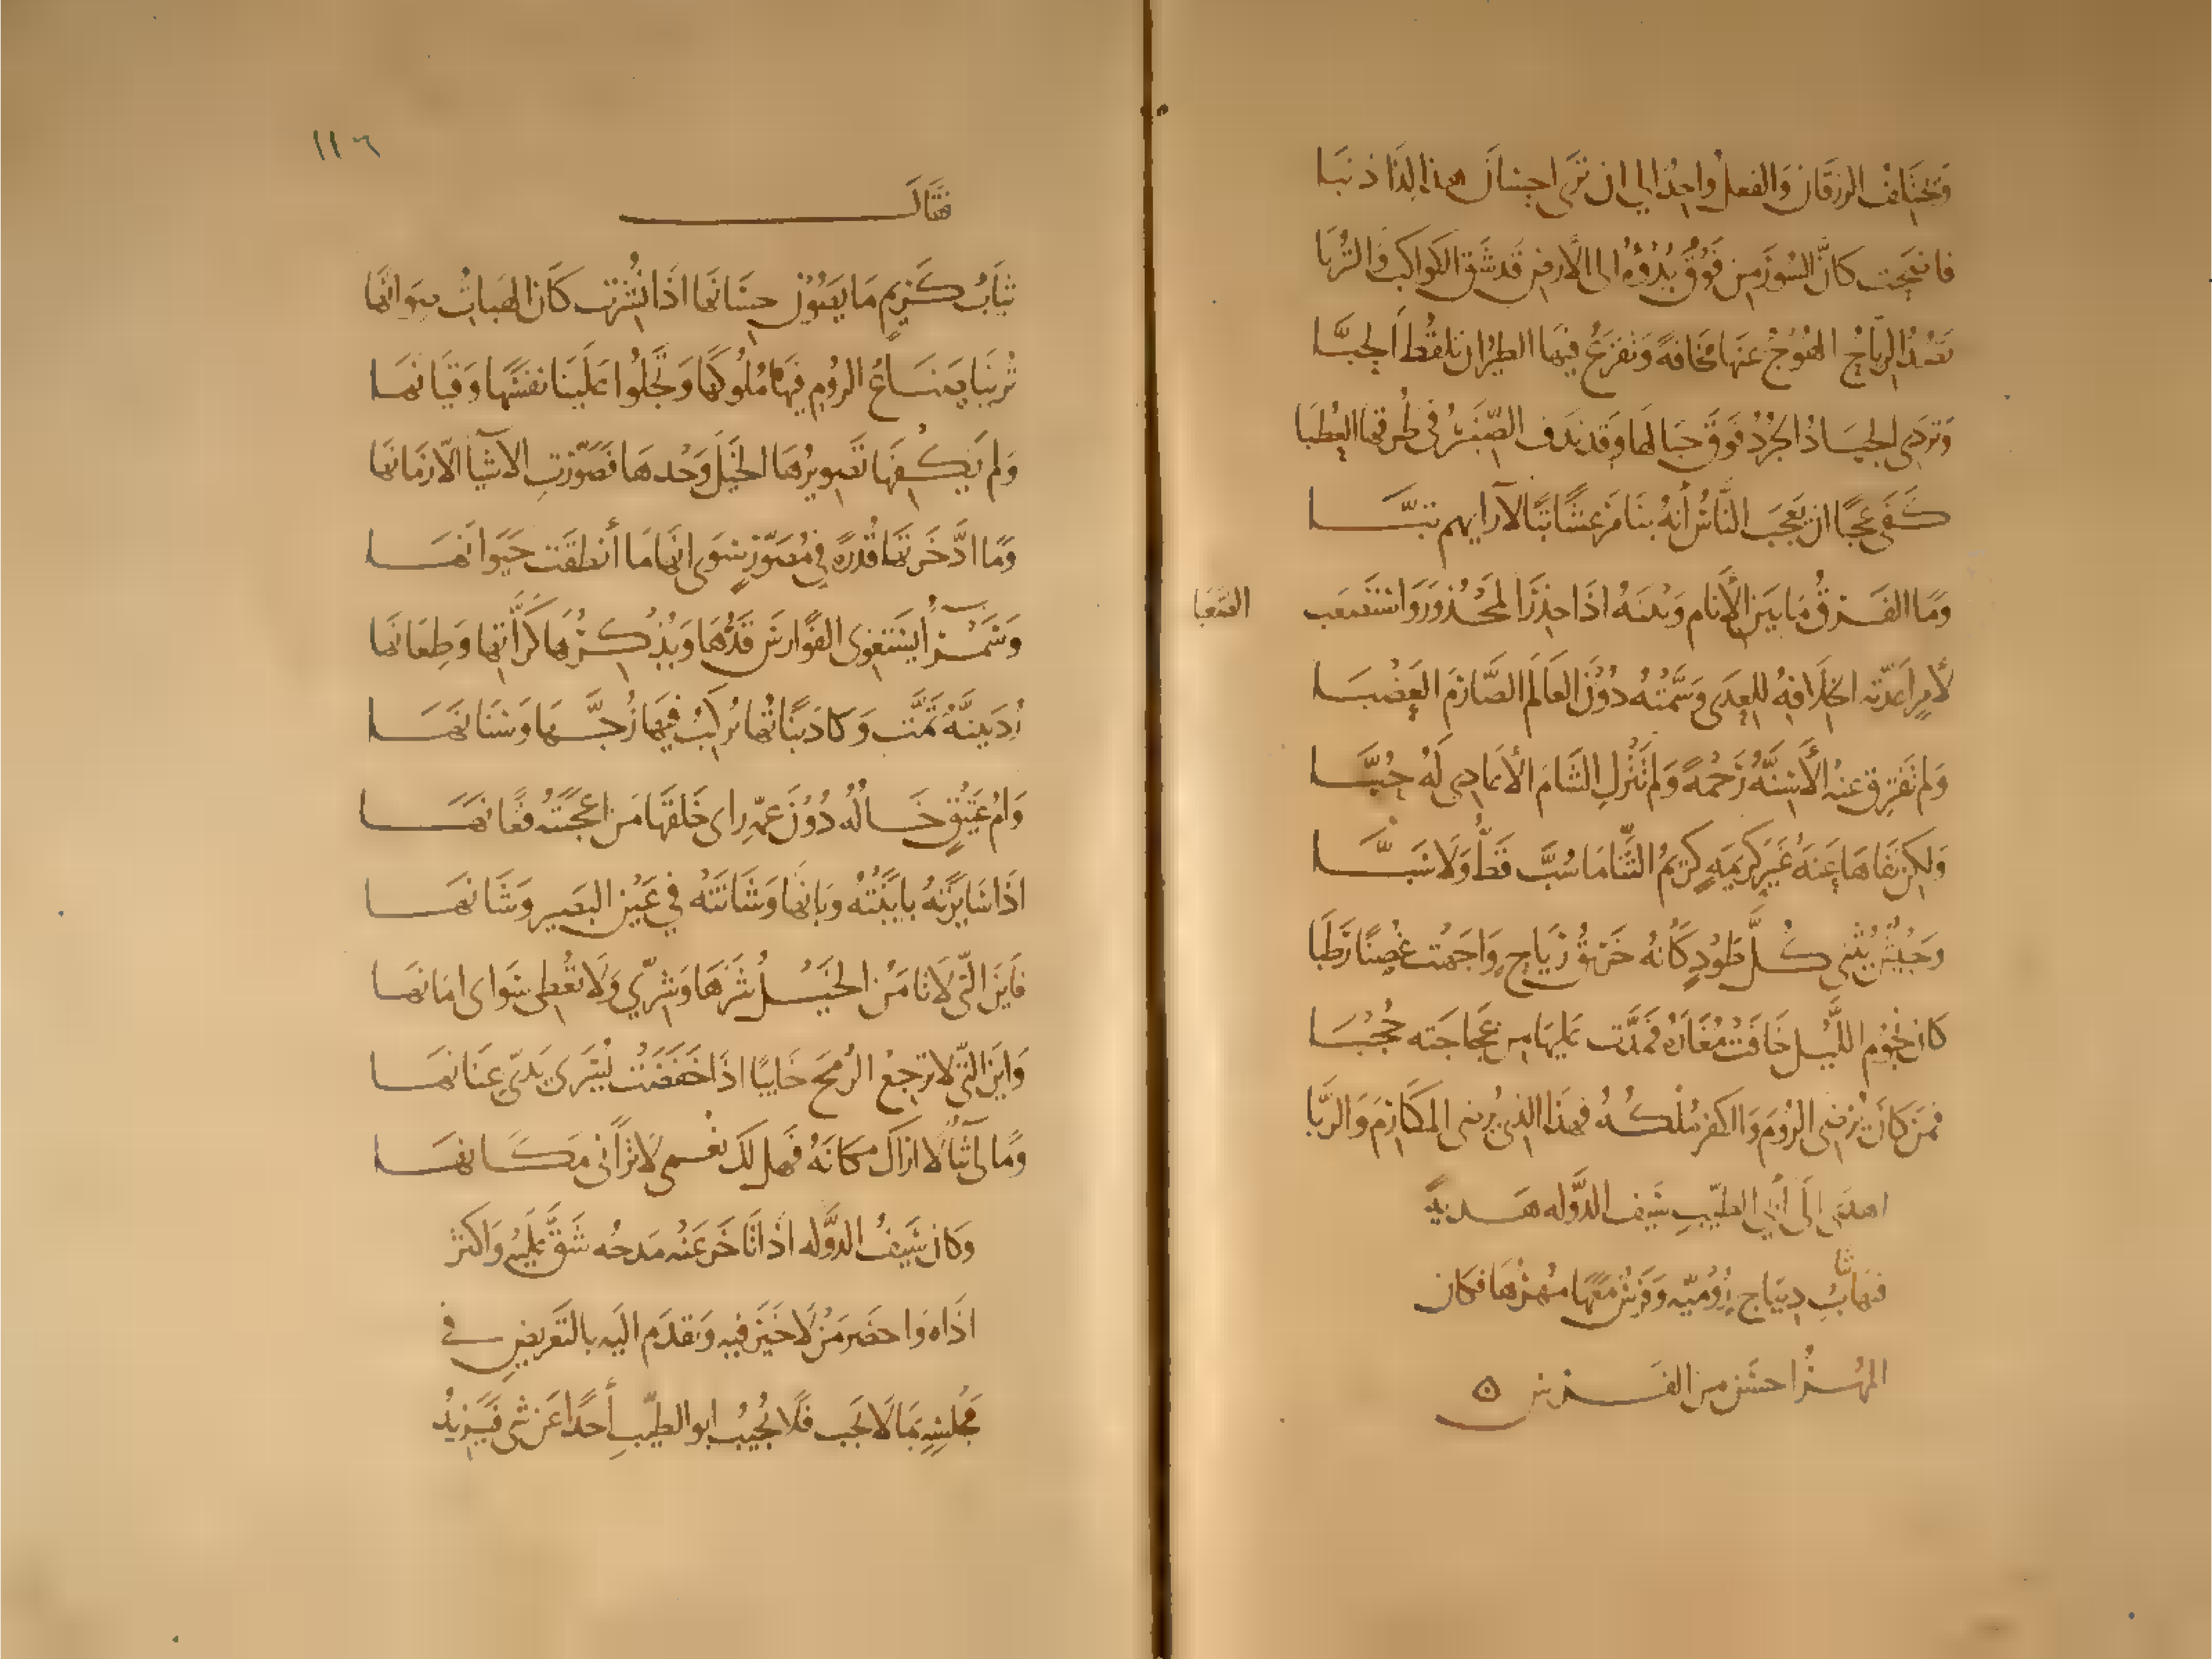 وَيختَلِفُ الرزقَانِ وَالفعلُ واحِدٌ الى ان تَرَى احِسَانَ هذا لِذَا ذنبَا
فاضحت كانَّ السُورَ مِن فَوْق بُدْؤُهُ الى الأرضِ قَد شَقَّ الكواكبَ وَالتُربَا
تصُدُّ الرِيَاحُ الهُوْجُ عَنهَا مَخَافةً وَتَفزَعُ فيهَا الطيرُ ان تلقُطَ الحبَّا
وَتردِى الجيَادُ الجُرْدُ فَوْقَ جبَالهَا وَقد نَدَفَ الصِّنَّبْرُ فى طُرقهَا العُطْبَا
كَفَى عجبًا ان يَعجَبَ النَّاسُ أنهُ بنَا مَرعشًا تبًّا لآرايهم تبَّا
وَمَا الفَرقُ مَا بَينَ الأنام وَبَينَهُ اذَا حَذِرَ المَحْذُورَ وَاستَصْعَب الصَّعبَا
لأمرٍ اَعَدّته الخِلَافةُ للِعِدَى وَسَمَّتْهُ دُوْنَ العَالَمِ الصَّارِمَ العَضْبَا
وَلم تَفتَرِق عنهُ الأَسِنَّةُ رَحْمةً وَلم تَتْرُكِ الشَامَ الأعَادِى لَهُ حُبَّا
وَلكِن نفَاهَا عَنهُ غَيرَ كَرِيمَةٍ كَرِيمُ الثَّنَا مَا سُبَّ قَطُّ وَلَا سَبَّا
وَجَيْشٌ يُثَنِّى كُلَّ طَوْدٍ كَأنهُ خَرِيقُ رِيَاحٍ وَاجَهَت غُصنًا رَطبَا
كان نجُوْمَ اللَّيْلِ خَافَتْ مُغَارَهُ فمَدَّت عَليهَا مِن عَجَاجَته حُجْبَا
فمَن كَانَ يُرْضِى الرُومَ وَالكفرَ مُلْكُهُ فهَذَا الذِى يُرضى المكَارِمَ وَالرَّبَّا
اهدَى إلَى أبي الطيّبِ سَيف الدَّوله هَديةً
فيهَا ثيابُ دِيبَاجٍ رُوْميّه وَفَرسٌ مَعَهَا مُهرُهَا فكان
المُهْرُ احسَنَ من الفَرس ٥
١١٦
فقَالَ
ثيَابُ كَريمٍ مَا يَصُوْنُ حِسَانهَا اذَا نُشِرَت كَانَ الهِبَاتُ صِوَانَهَا
تُرِينَا صَنَاعُ الرُومِ فيهَا مُلُوكَهَا وَتَجلُوا عَلَينَا نفسَهَا وَقِيَانهَا
وَلم يَكفِهَا تَصويرُهَا الخَيلَ وَحْدهَا فصَوّرَتِ الاشيَا الّا زمَانهَا
وَمَا ادَّخَرَتهَا قُدْرَةً فِي مُصَوِّرٍ سِوَى انّهَا مَا أنطقَت حَيَوَانهَا
وَسَمْرَأُ يَستَغوِى الفوَارسَ قَدُّهَا وَيُذْكِرُهَا كَرَّاتِهَا وَطِعَانهَا
رُدَينيَّةٌ تمَّت وَكادَ نبَاتُهَا يُرَكّبُ فيهَا زُجَّهَا وَسِنَانهَا
وَامُّ عَتِيْقٍ خَالُهُ دُوْنَ عَمّهِ رَاى خَلقَهَا مَن اعجَبَتهُ فعَانهَا
اذَا سَايَرَتهُ بايَنَتْهُ وَبَانهَا وَشَانَتْهُ فى عَيْنِ البَصِيرِ وَشَانهَا
فَاينَ الّتى لَا تامَنُ الخَيْلُ شَرّهَا وَشَرّى وَلَا تُعْطِى سِوَاى امَانهَا
وَاينَ التّى لَا ترجعُ الرُمحَ خَايبًا اذَا خَفَضَتْ يُسْرَى يَدَىّ عِنَانهَا
وَمَا لى ثنَاءٌ لَا ارَاكَ مكَانَهُ فهَل لَكَ نُعْمى لَا تَرَانِى مَكانهَا
وَكان سَيفُ الدَّوله اذا تأخَّر عَنْه مَدحُه شَقَّ عَليْه وَاكثر
اذَاه وَاحضَر مَنْ لَا خَيْرَ فيه وَتقدَم اليَه بالتَعريضِ فى
مَجلسِهِ بمَا لَا يُحَب فلَا يُجيبُ ابو الطيّبِ أحدًا عَن شَى فيَزيدُ